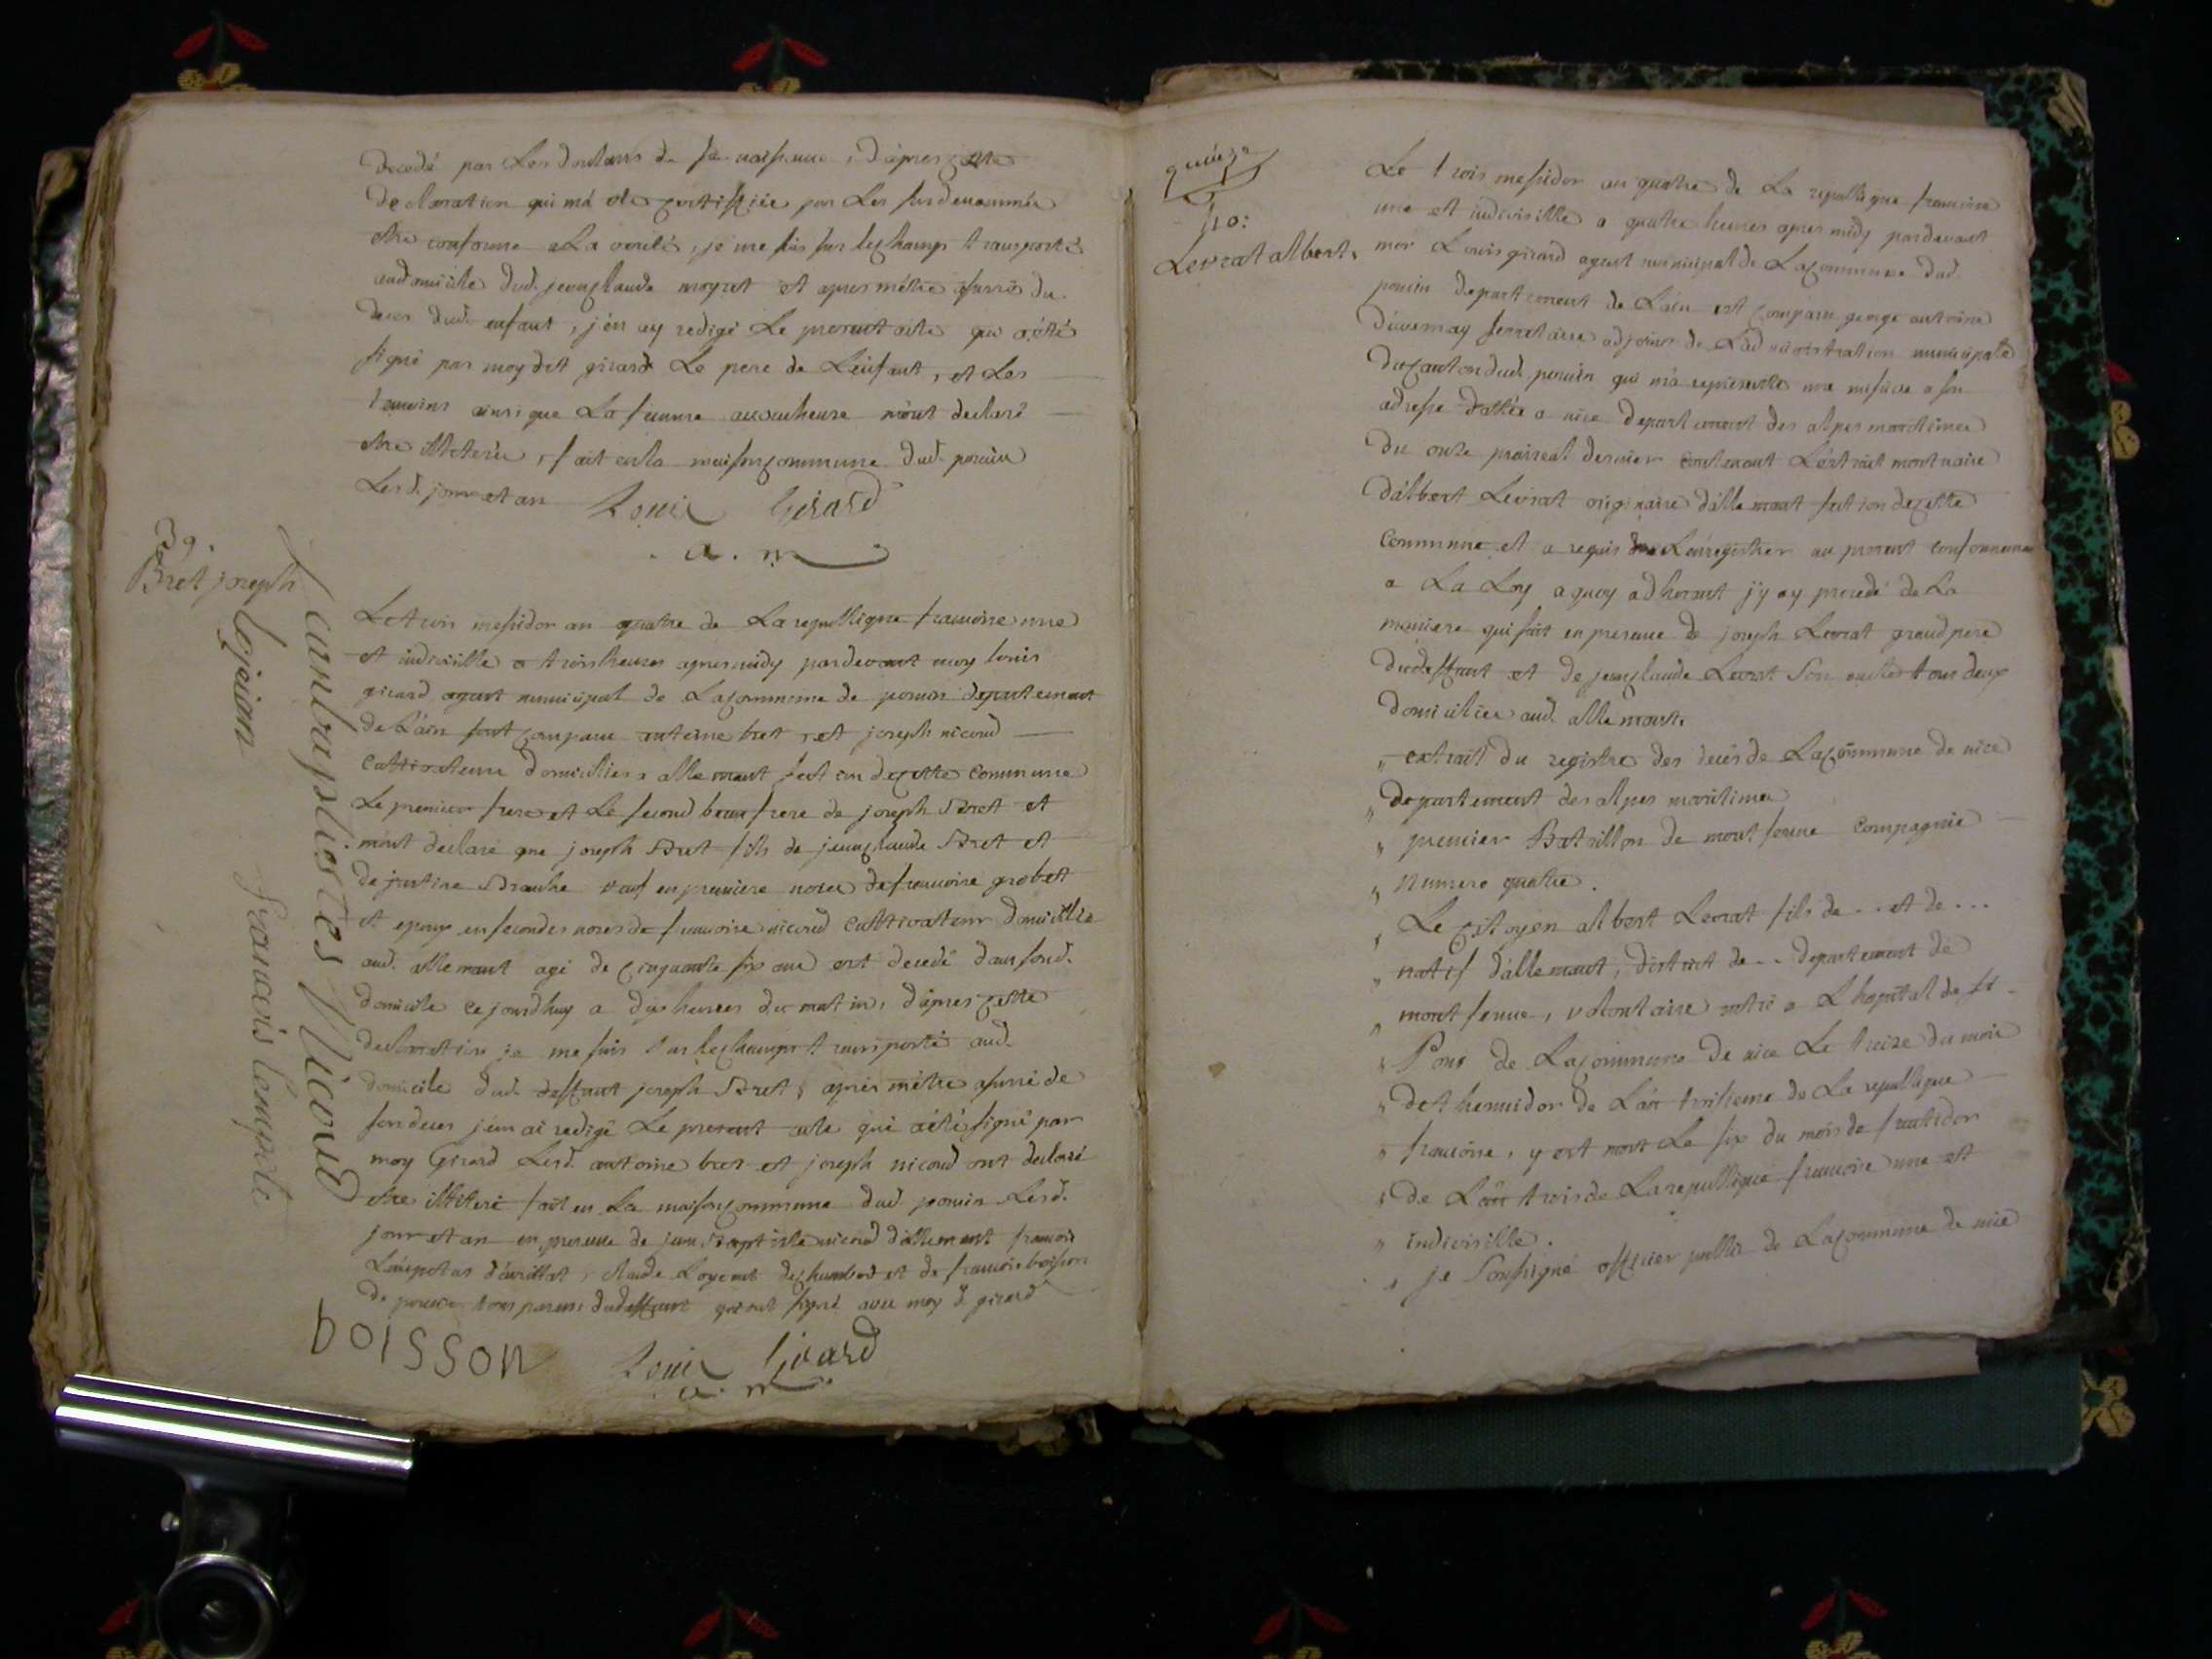 decedé par Les douleurs de sa naissance, d'apres cette
declaration qui m'a ete certiffiée par Les susdenommés
etre conforme a La verité, je me suis sur le champ transporté
au domicile dud. jean claude moyret et apres m'etre assuré du
deces dud. enfant, j'en ay redigé Le present acte qui a été
signé par moy dit girard Le pere de L'enfant, et Les
temoins ainsi que La femme accoucheuse m'ont declaré
etre illeterés, fait en la maison commune dud. poncin
Lesd. jour et an Louis Girard
a. m
39.
Bret joseph
Le trois messidor an quatre de La republique francoise une
et indivisible a trois heures apres midy pardevant moy louis
girard agent municipal de La commune de poncin departement
de L'ain sont comparu antoine bret, et joseph nicoud
cultivateurs domiciliers allement section de cette commune
Le premier frere et Le second beau frere de joseph Bret et
m'ont declaré que joseph Bret fils de jean claude Bret et
de justine veuf en premiere noces de francoise grobet
et epoux en secondes noces de francoise nicoud cultivateur domicilié
aud. allemant agé de cinquante six ans est decedé dans sond.
domicile ce jourd'huy a dix heures du matin, d'apres cette
declaration je me suis sur le champ transporté aud.
domicile dud. deffunt joseph Bret, apres m'etre assuré de
son deces j'en ai redigé Le present acte qui a été signé par
moy Girard Lesd. antoine bret et joseph nicoud ont declaré
etre illiteré fait en La maison commune dud. poncin Lesd.
jour et an en presence de jean Baptiste nicoud d'allement francois
claude Loyent et de francois boisson
de poncin tous parens dud deffunt qui ont signé avec moy d. girard
jeanbaptistes Nicoud
lojeian
francois
boisson
Louis Girard
a. m
quinze
40:
Levrat albert.
Le trois messidor an quatre de La republique francoise
une et indivisible a quatre heures apres midy pardevant
moy Louis girard agent municipal de La commune dud.
poncin departement de L'ain est comparu george antoine
secretaire adjoint de L'administration municipale
du canton dud. poncin qui m'a représenté une missive a son
adresse dattée a nice departement des alpes maritimes
du onze prairéal dernier contenant L'extrait mortuaire
d'albert Levrat originaire d'allemant section de cette
commune et a requis de L'enregistrer au present conformement
a La Loy a quoy adherant j'y ay procédé de La
maniere qui suit en presence de joseph Levrat grand pere
dud deffunt et de jean claude Levrat son oncle tous deux
domicilies aud. allemant.
„ extrait du registre des decés de La commune de nice
„ departement des alpes maritimes
„ premier Bataillon de mont ferme compagnie
„ numero quatre.
„ Le citoyen albert Levrat fils de . . . et de . . .
„ natif d'allemant, district de . . departement de
„ mont ferme, volontaire entré a L'hopital de st
„ Pons de La commune de nice Le treize du mois
„ de thermidor de L'an troisieme de La republique
„ francoise, y est mort Le six du mois de fructidor
„ de L'an trois de La republique francoise une et
„ indivisible.
„ je soussigné officier public de La commune de nice